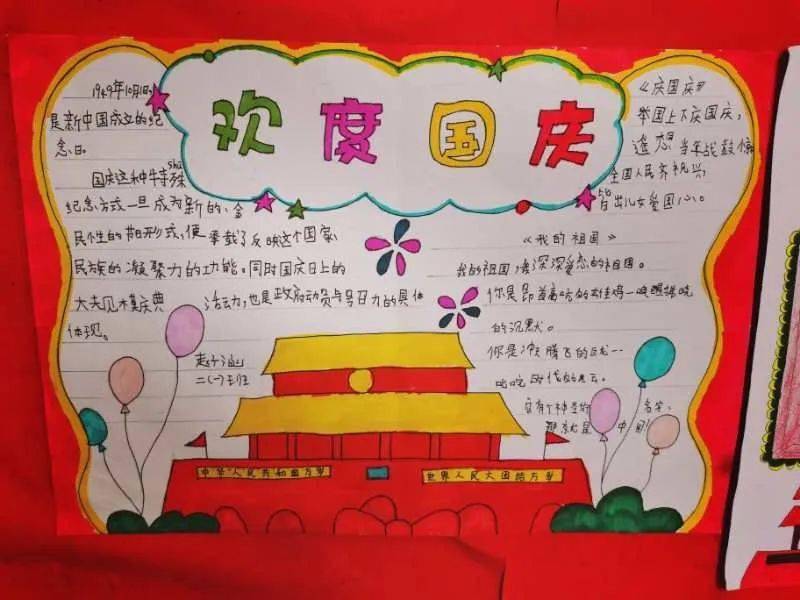 欢度国庆
1949年10月1日
是新中国成立的纪
念日。
国庆这种特殊
shū
纪念方式一旦成为新的、全
民性的节日形式,便承载了反映这个国家、
民族的凝聚力的功能。同时国庆日上的
大夫见木莫庆典活动力,也是政府动员与号召力的具体
体现。
二(一)班
《庆国庆》
举国上下庆国庆,
遥想当年战鼓惊
全国人民齐祝兴
皆出儿女爱国心。
《我的祖国》
我的祖国,我深深爱恋的祖国。
你是昂首高吭的雄鸡一唤醒拂晓
的沉默。
你是冲天腾飞的巨龙一
叱咤时代的风云。
名字,
那就是中国!
中华人民共和国万岁
世界人民大团结万岁